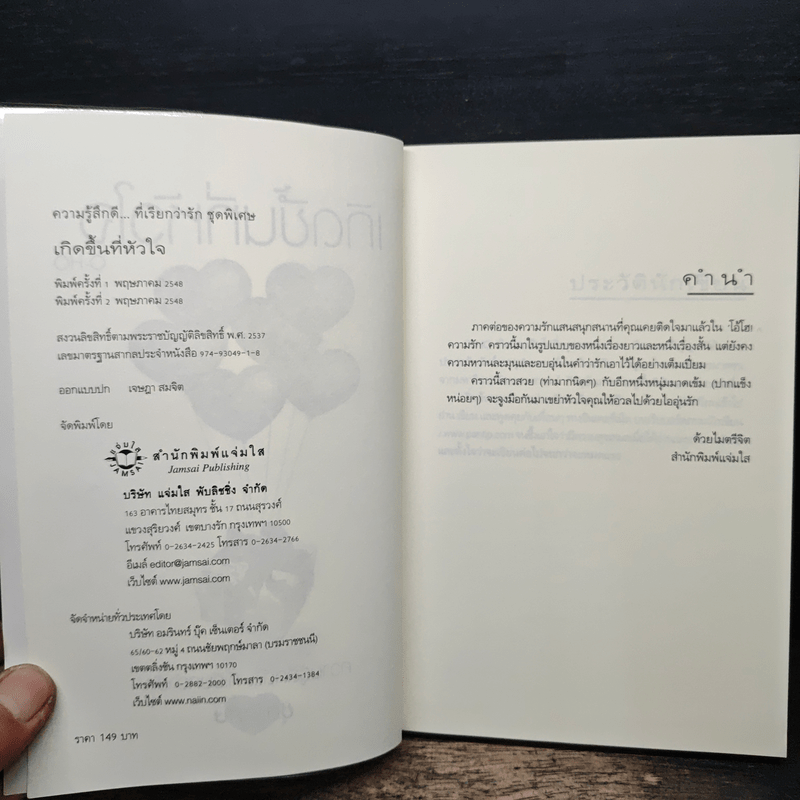 ความรู้สึกดี... ที่เรียกว่ารัก ชุดพิเศษ
เกิดขึ้นที่หัวใจ
พิมพ์ครั้งที่ 1 พฤษภาคม 2548
พิมพ์ครั้งที่ 2 พฤษภาคม 2548
สงวนลิขสิทธิ์ตามพระราชบัญญัติลิขสิทธิ์ พ.ศ. 2537
เลขมาตรฐานสากลประจำหนังสือ 974-93049-1-8
ออกแบบปก เจษฎา สมจิต
จัดพิมพ์โดย
สำนักพิมพ์แจ่มใส
Jamsai Publishing
บริษัท แจ่มใส พับลิชชิ่ง จำกัด
163 อาคารไทยสมุทร ชั้น 17 ถนนสุรวงศ์
แขวงสุริยวงศ์ เขตบางรัก กรุงเทพฯ 10500
โทรศัพท์ 0-2634-2425 โทรสาร 0-2634-2766
อีเมล์ editor@jamsai.com
เว็บไซต์ www.jamsai.com
จัดจำหน่ายทั่วประเทศโดย
บริษัท อมรินทร์ บุ๊ค เซ็นเตอร์ จำกัด
65/60-62 หมู่ 4 ถนนชัยพฤกษ์มาลา (บรมราชชนนี)
เขตตลิ่งชัน กรุงเทพฯ 10170
โทรศัพท์ 0-2882-2000 โทรสาร 0-2434-1384
เว็บไซต์ www.naiin.com
ราคา 149 บาท
คำนำ
ภาคต่อของความรักแสนสนุกสนานที่คุณเคยติดใจมาแล้วใน 'โอ้โฮ!
ความรัก' คราวนี้มาในรูปแบบของหนึ่งเรื่องยาวและหนึ่งเรื่องสั้น แต่ยังคง
ความหวานละมุนและอบอุ่นในคำว่ารักเอาไว้ได้อย่างเต็มเปี่ยม
คราวนี้สาวสวย (ท่ามากนิดๆ) กับอีกหนึ่งหนุ่มมาดเข้ม (ปากแข็ง
หน่อยๆ) จะจูงมือกันมาเขย่าหัวใจคุณให้อวลไปด้วยไออุ่นรัก
ด้วยไมตรีจิต
สำนักพิมพ์แจ่มใส